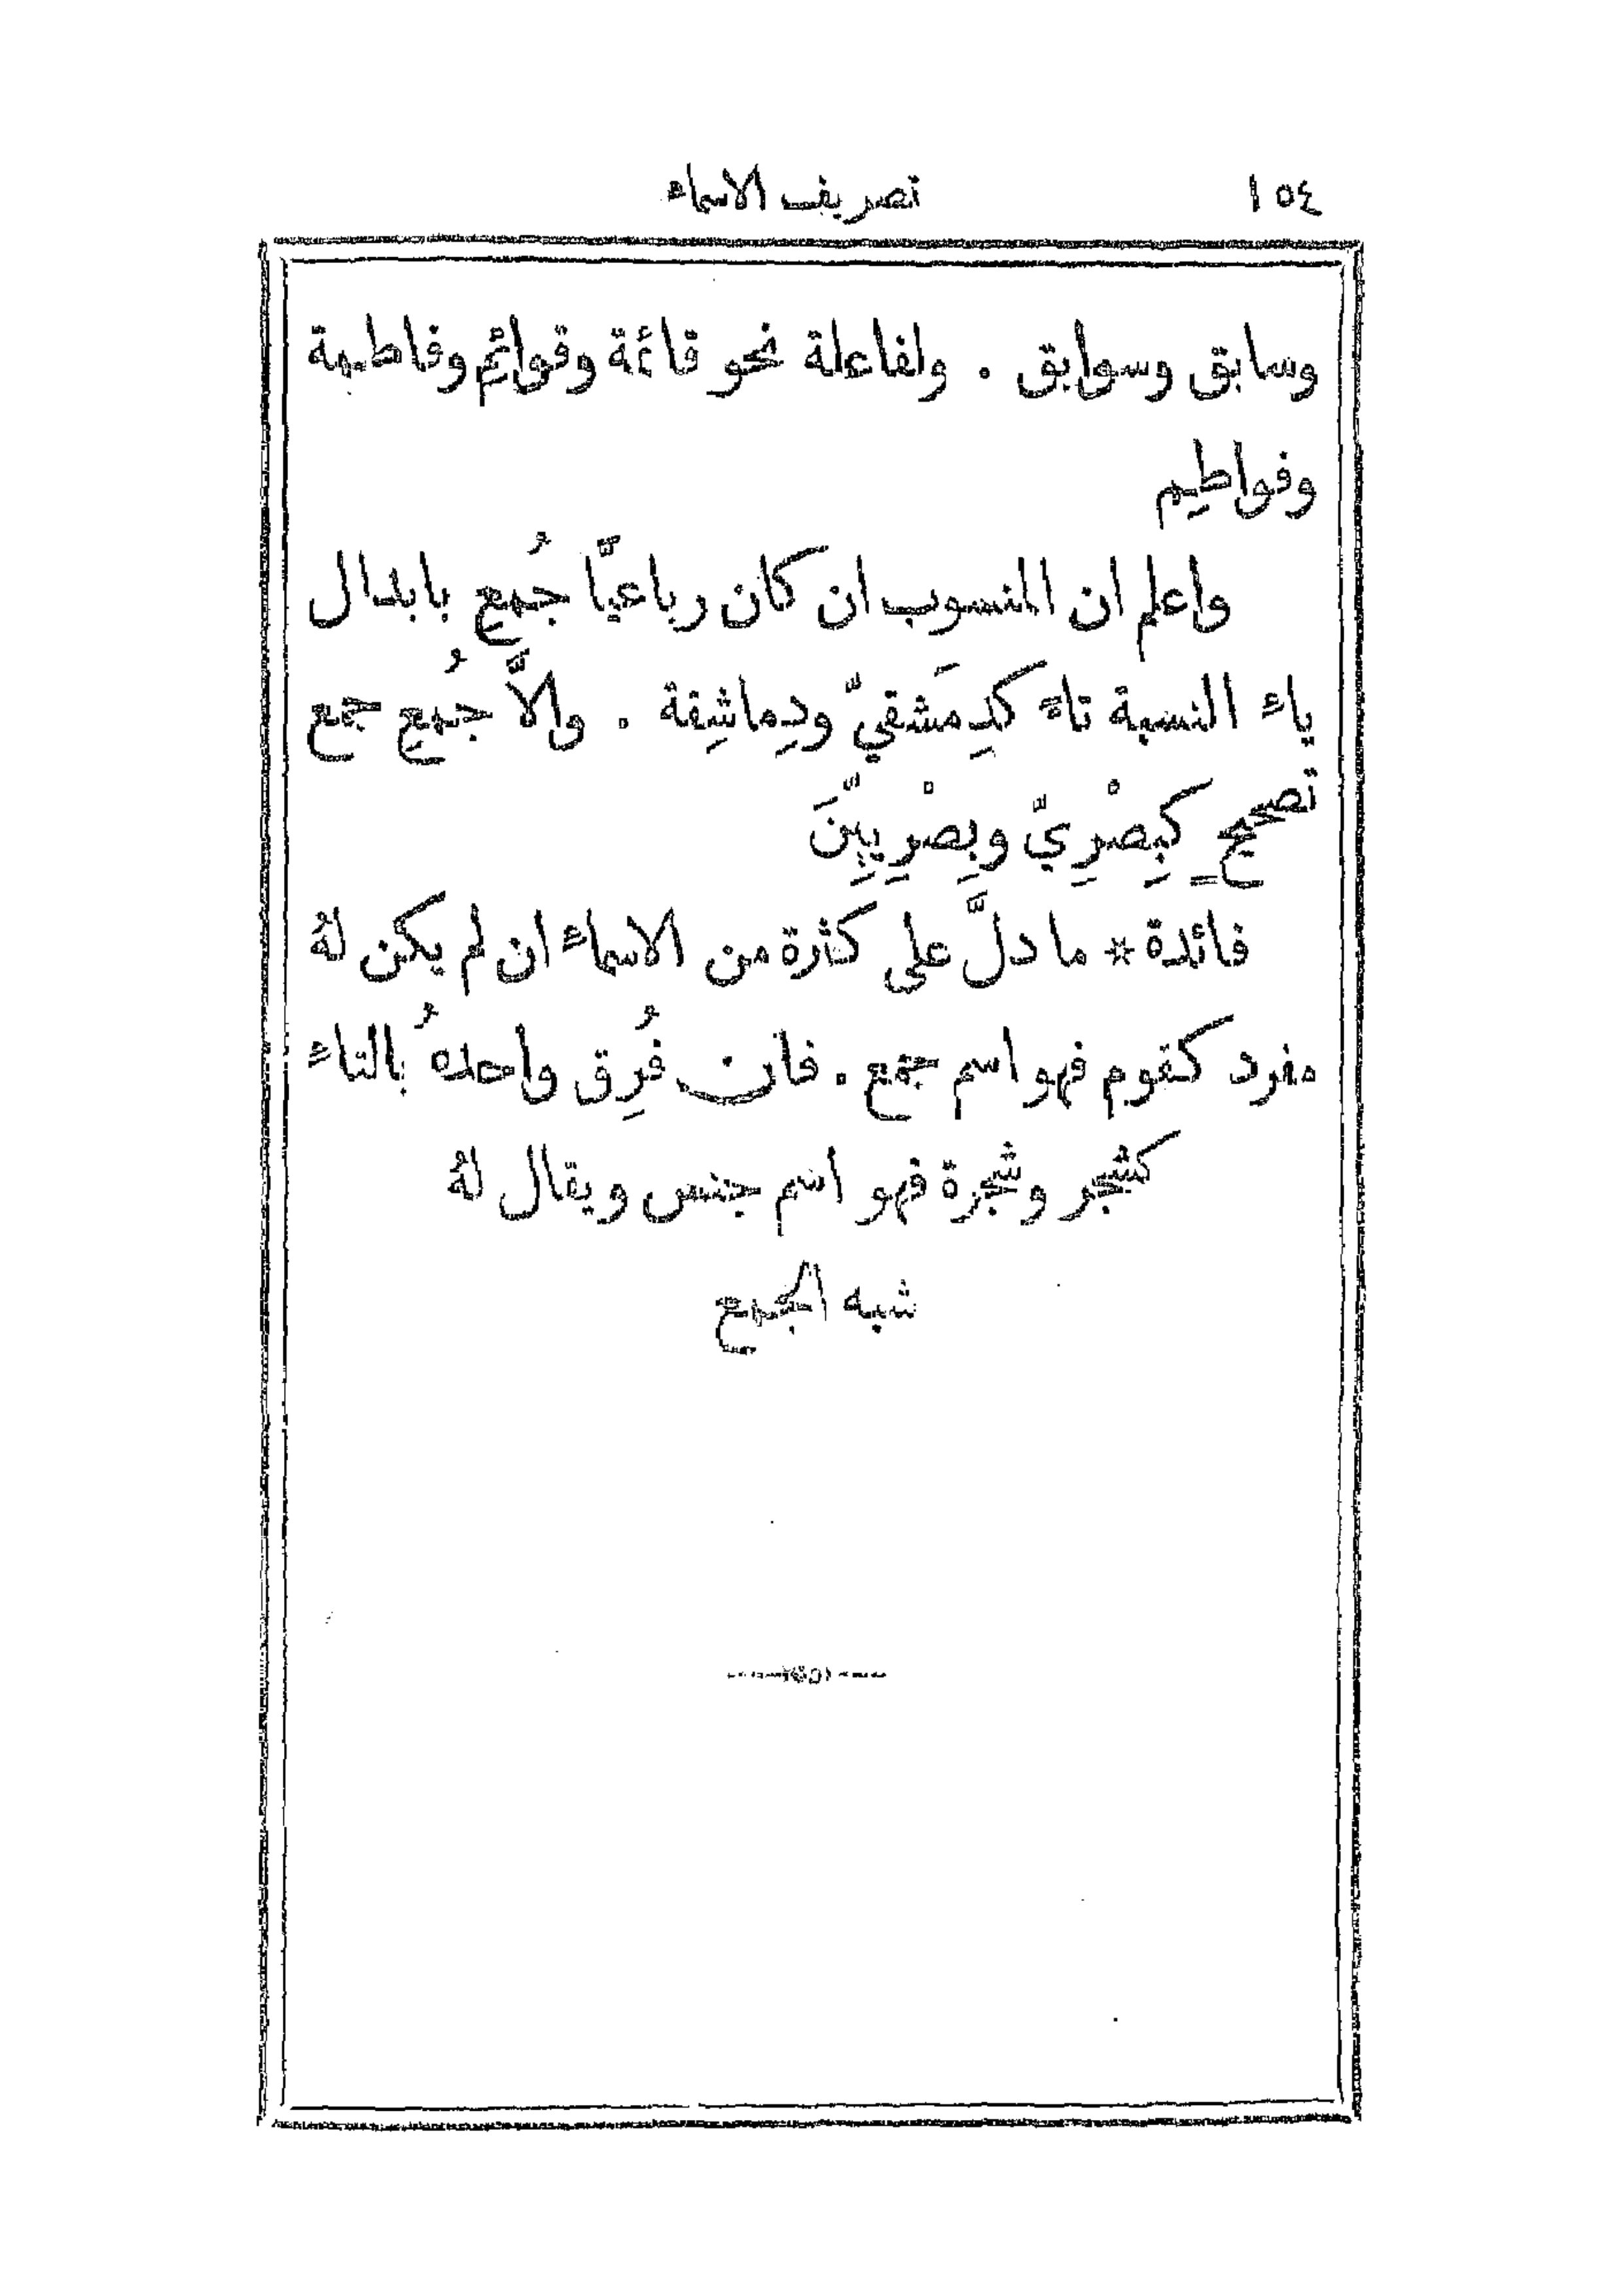 ١٥٤ تصريف الاسماء
وسابق وسوابق . ولفاعلة نحو قائمة وقوائِم وفاطمة
وفواطِم
واعلم ان المنسوب ان كان رباعيًّا جُمِع بابدال
ياء النسبة تاءً كدِمَشقيّ ودِماشِقة . والاَّ جُمِع جمع
تصحيحٍ كبِصْرِيّ وبِصْرِيِّينَ
فائدة * ما دلَّ على كثرة من الاسماء ان لم يكن لهُ
مفرد كقوم فهو اسم جمع . فان فُرِق واحدهُ بالتاء
كشجر وشجرة فهو اسم جنس ويقال لهُ
شبه الجمع